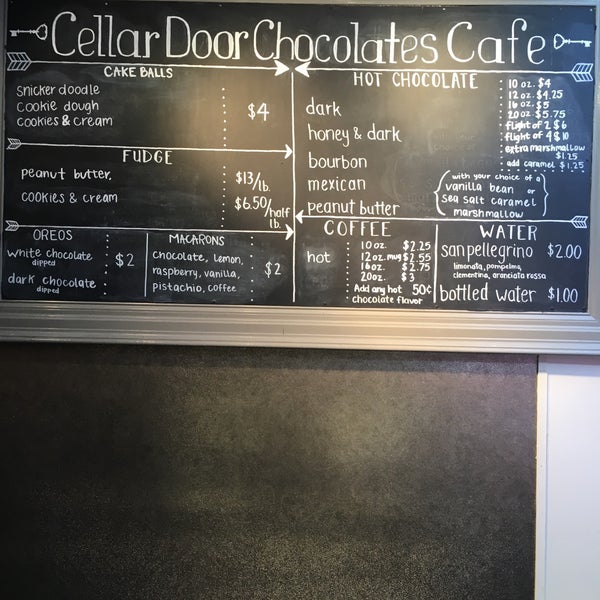 Cellar Door Chocolates Cafe
CAKE BALLS
snicker doodle
cookie dough
cookies & cream
$4
FUDGE
peanut butter,
cookies & cream
$13/lb.
$6.50/half
lb.
OREOS
white chocolate
dipped
dark chocolate
dipped
$2
MACARONS
chocolate, lemon,
raspberry, vanilla,
pistachio, coffee
$2
HOT CHOCOLATE
dark
honey & dark
bourbon
mexican
peanut butter
10 oz. $4
12 oz. $4.25
16 oz. $5
20 oz. $5.75
flight of 2 $6
flight of 4 $10
extra marshmallow
$1.25
add caramel $1.25
with your choice of a
vanilla bean or
sea salt caramel
marshmallow
COFFEE
hot
10 oz. $2.25
12 oz. mug $2.55
16 oz. $2.75
20 oz. $3
Add any hot 50¢
chocolate flavor
WATER
sanpellegrino $2.00
limonata, pompelmo,
clementina, aranciata rossa
bottled water $1.00